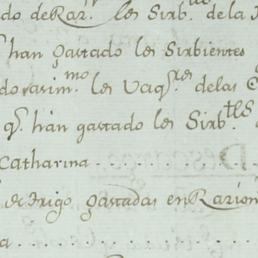 do de Raz.ⁿ les Sirb.ᵗᵉˢ de la
q.ᵉ han gastado les Sirbientes
do asim.ᵐᵒ les Vaq.ʳᵉˢ de las
q.ᵉ han gastado les Sirb.ᵗᵉˢ
Catharina . . . . . . . . . .
de trigo gastadas en Razion
a . . . . . . . . . . . . . .